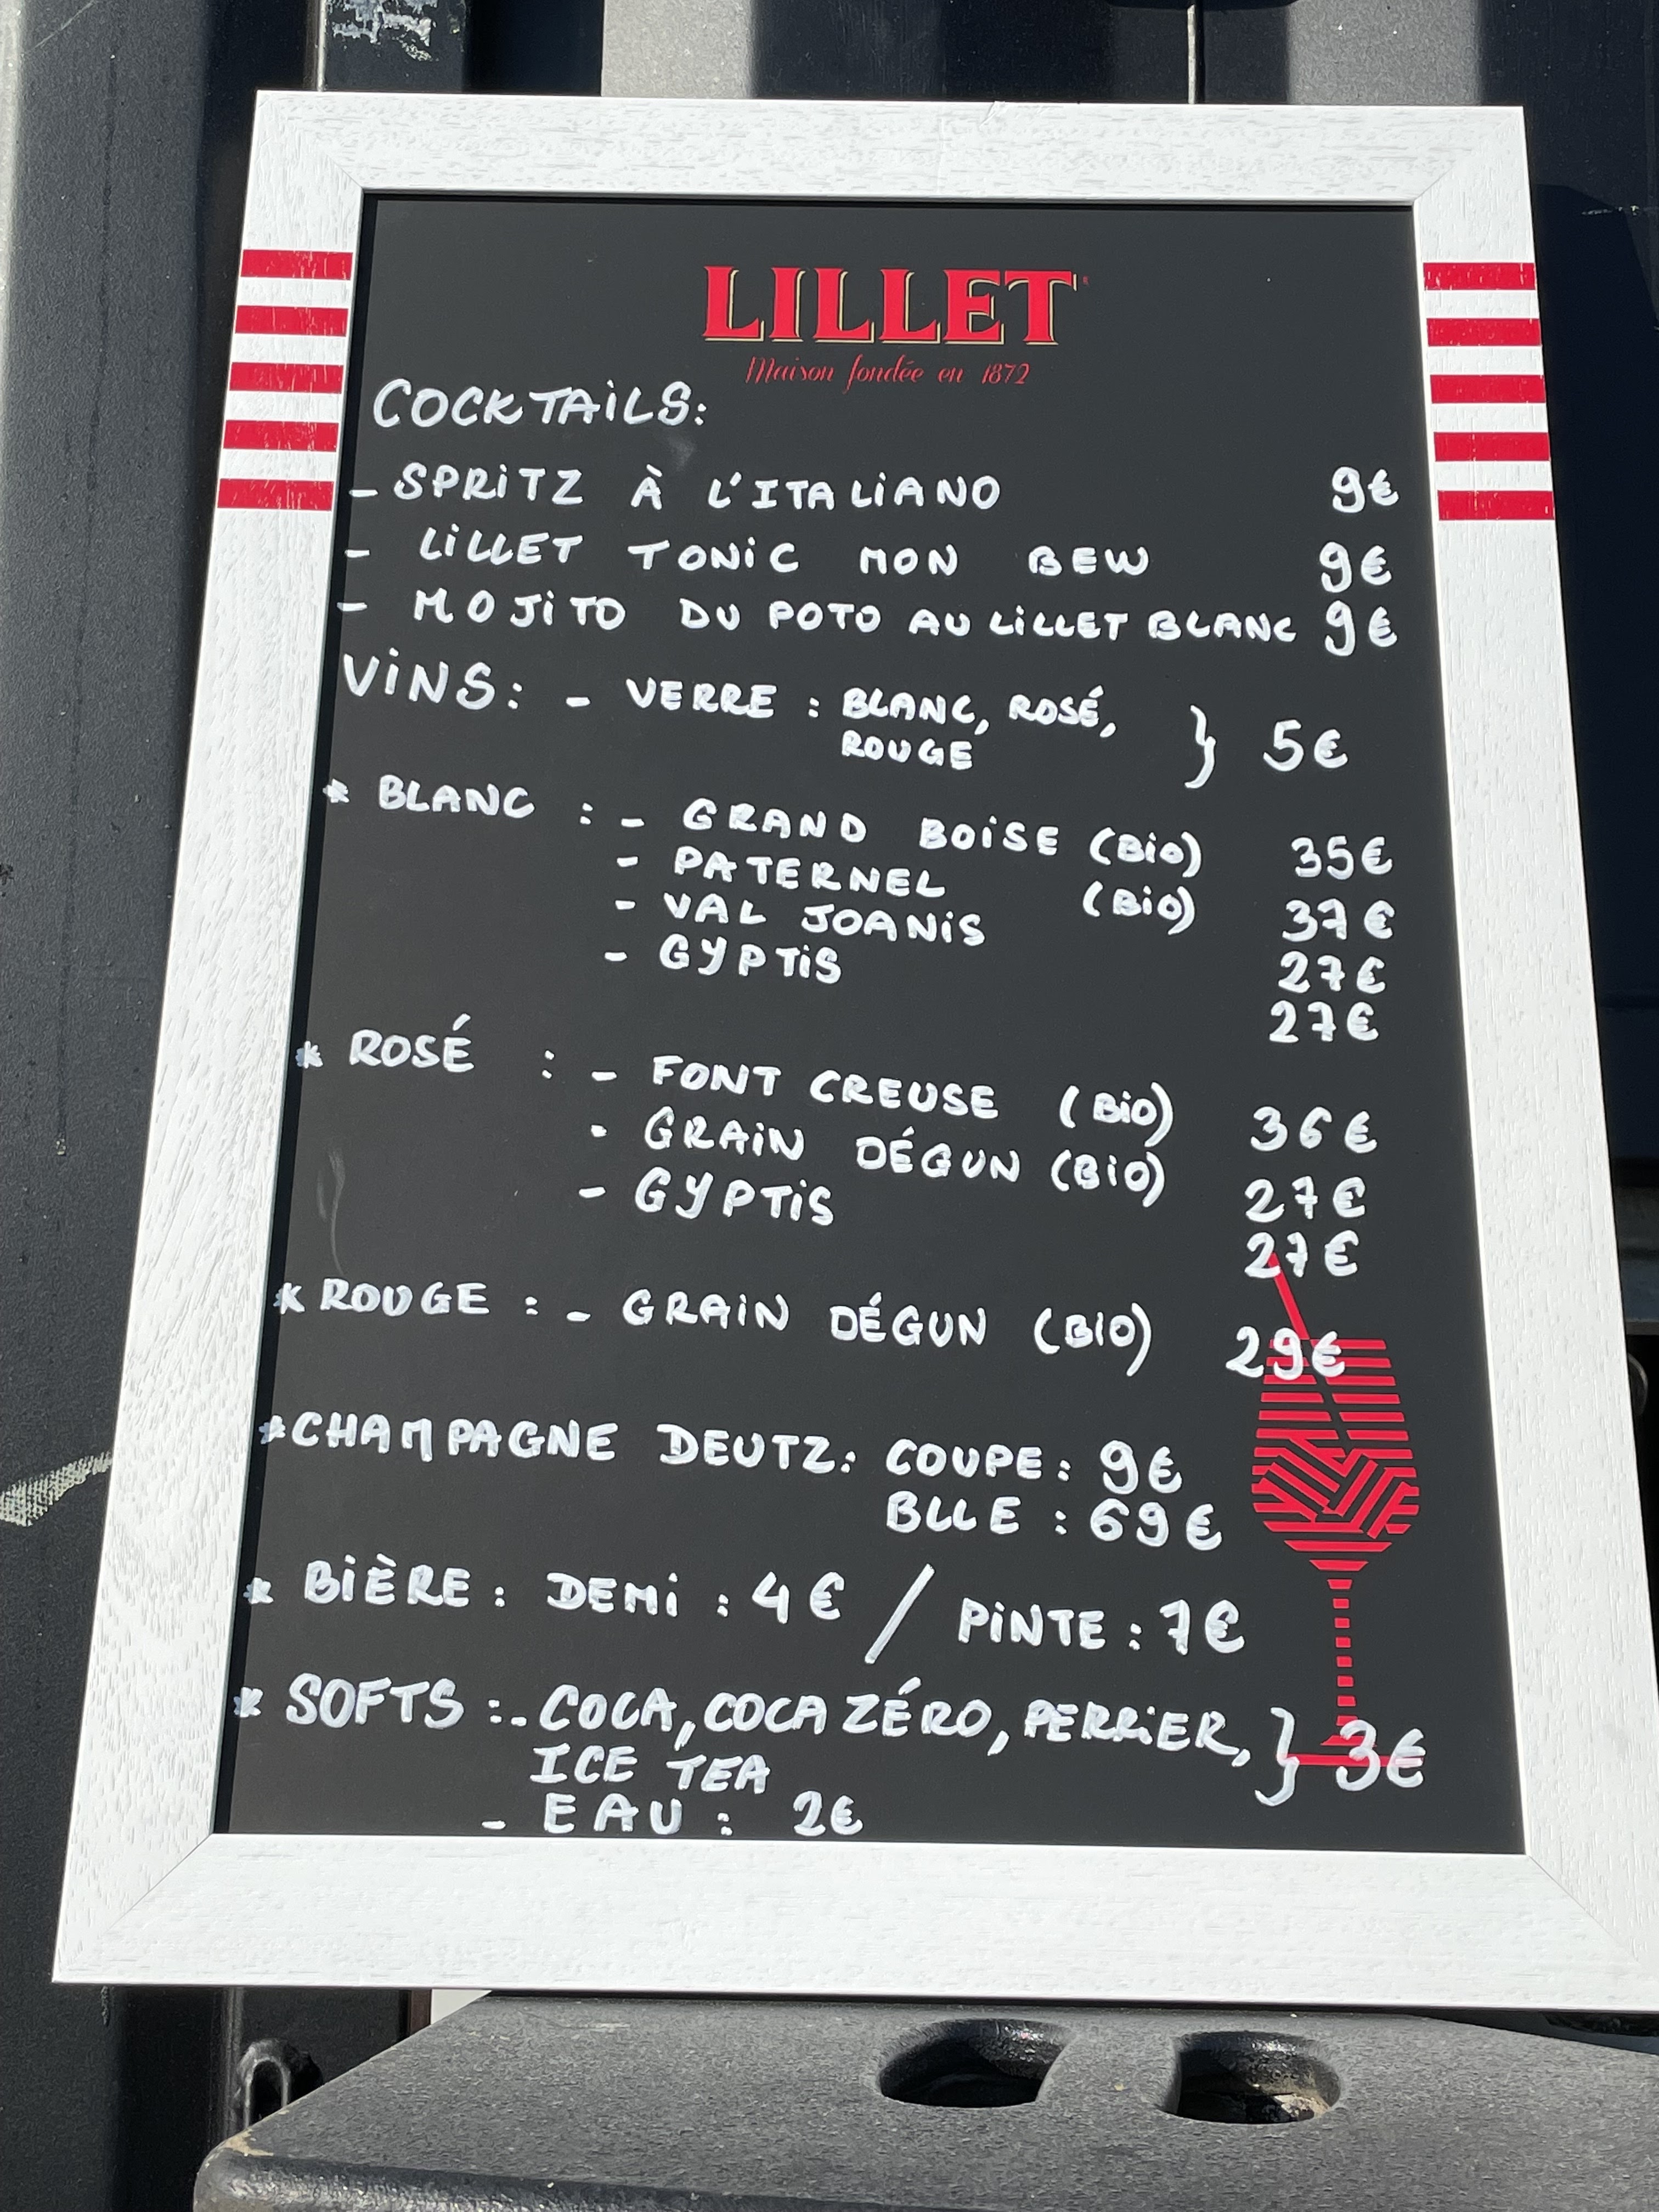 LILLET
Maison fondée en 1872
COCKTAiLS:
- SPRiTZ À L'ITALiANO 9€
- LiLLET TONiC MON BEW 9€
- MOJiTO DU POTO AU LiLLET BLANC 9€
ViNS: - VERRE : BLANC, ROSÉ, } 5€
ROUGE
* BLANC : - GRAND BOiSE (BiO) 35€
- PATERNEL (BiO) 37€
- VAL JOANiS 27€
- GYPTiS 27€
* ROSÉ : - FONT CREUSE (BiO) 36€
- GRAiN DÉGUN (BiO) 27€
- GYPTiS 27€
* ROUGE : - GRAiN DÉGUN (BIO) 29€
*CHAMPAGNE DEUTZ: COUPE: 9€
BLLE : 69€
* BiÈRE : DEMi : 4€ / PiNTE : 7€
* SOFTS :- COCA, COCA ZÉRO, PERRiER, } 3€
ICE TEA
- EAU : 2€